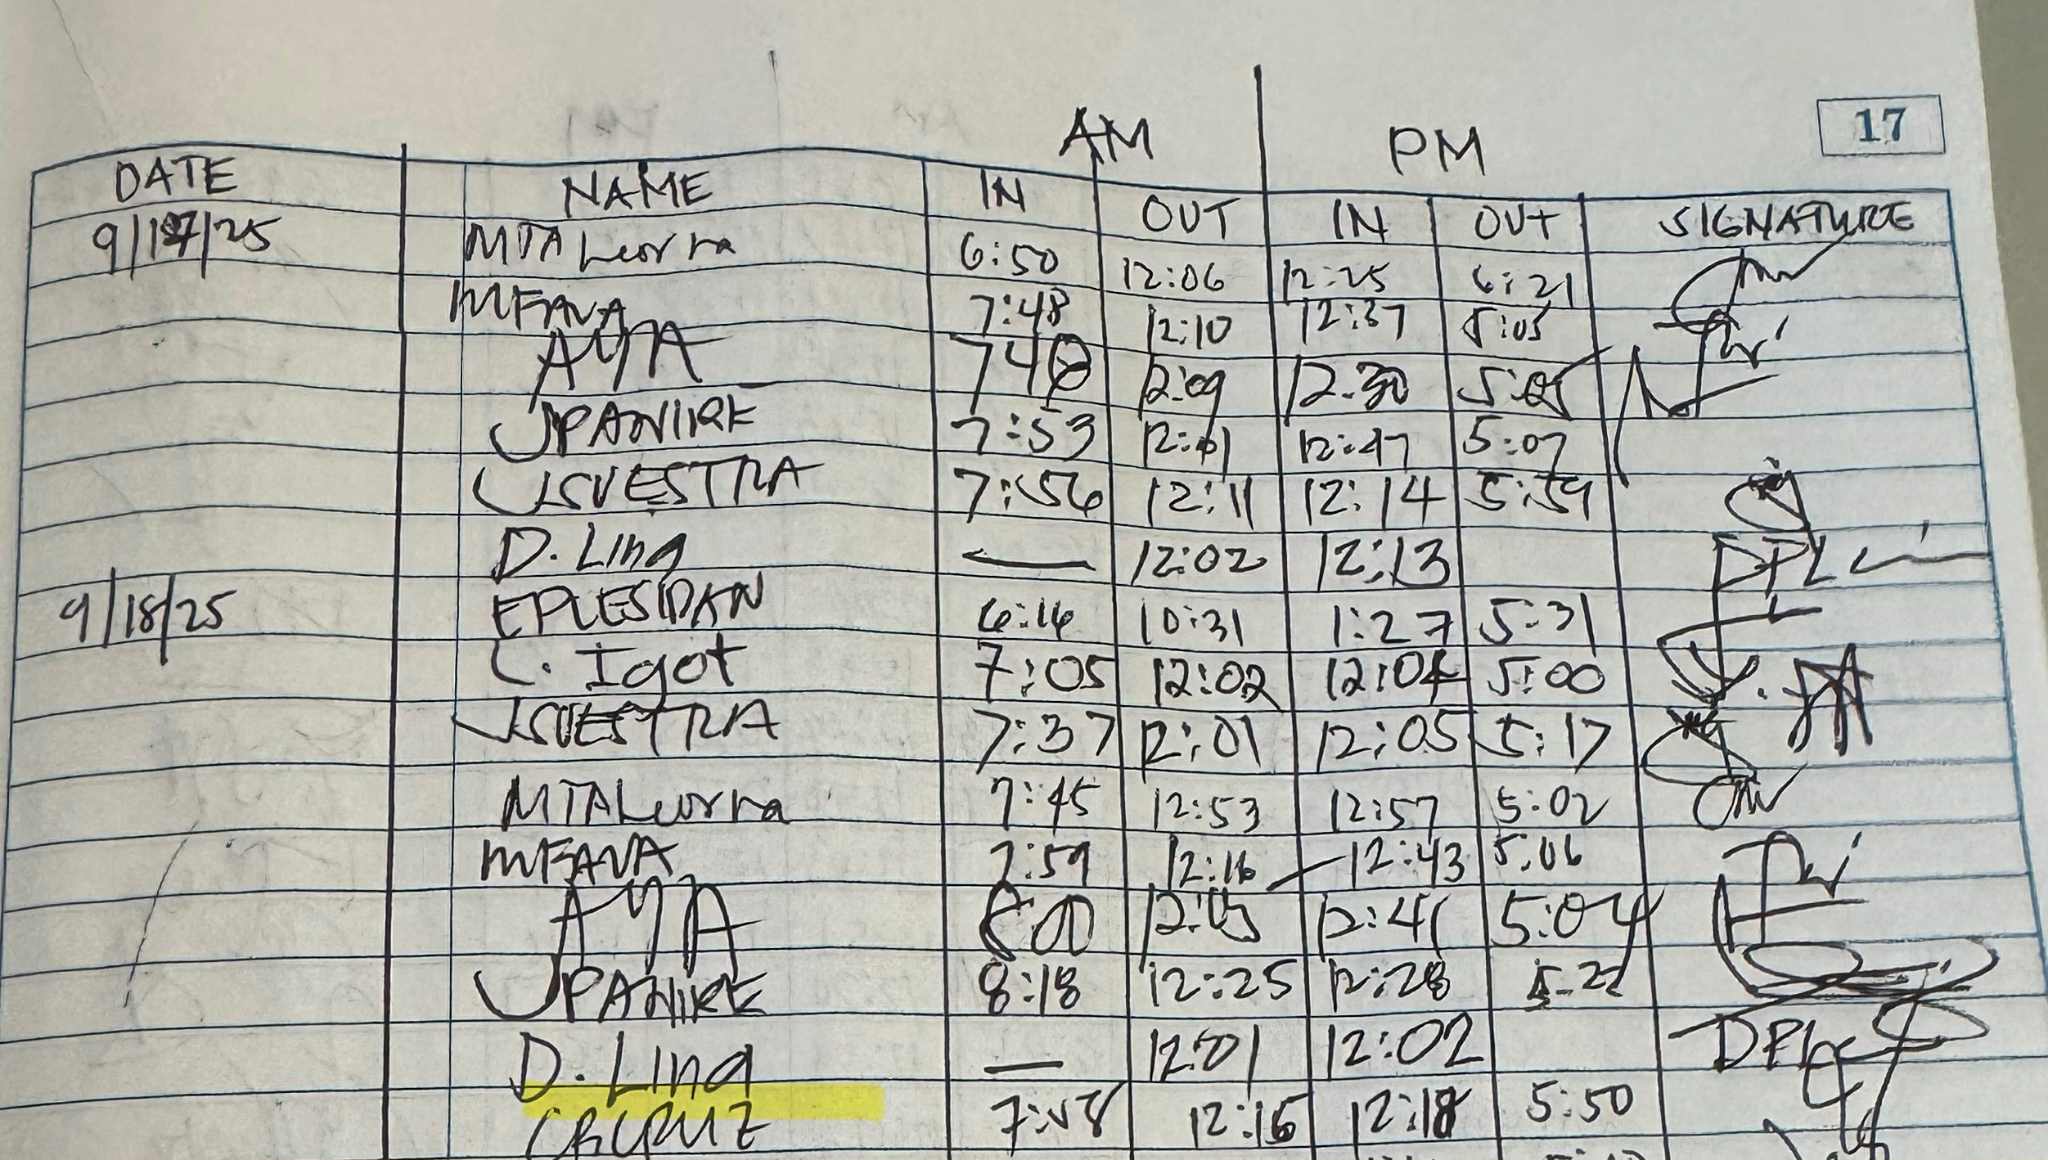 17
AM PM
DATE NAME IN OUT IN OUT SIGNATURE
9/17/25 MTA Leorna 6:50 12:06 12:25 6:21
MFAVA 7:48 12:10 12:37 5:05
AYA 748 12:09 12:30 5:05
JPANIRE 7:53 12:01 12:47 5:07
JSVESTRA 7:56 12:11 12:14 5:59
D. Ling — 12:02 12:13
9/18/25 EPLESIDAN 6:16 10:31 1:27 5:31
C. Igot 7:05 12:02 12:04 5:00
JSVESTRA 7:37 12:01 12:05 5:17
MTA Leorna 7:45 12:53 12:57 5:02
MFAVA 7:59 12:16 12:43 5:06
AYA 8:00 12:05 12:41 5:04
JPANIRE 8:18 12:25 12:28 5:22
D. Ling — 12:01 12:02
CRCRUZ 12:18 5:50